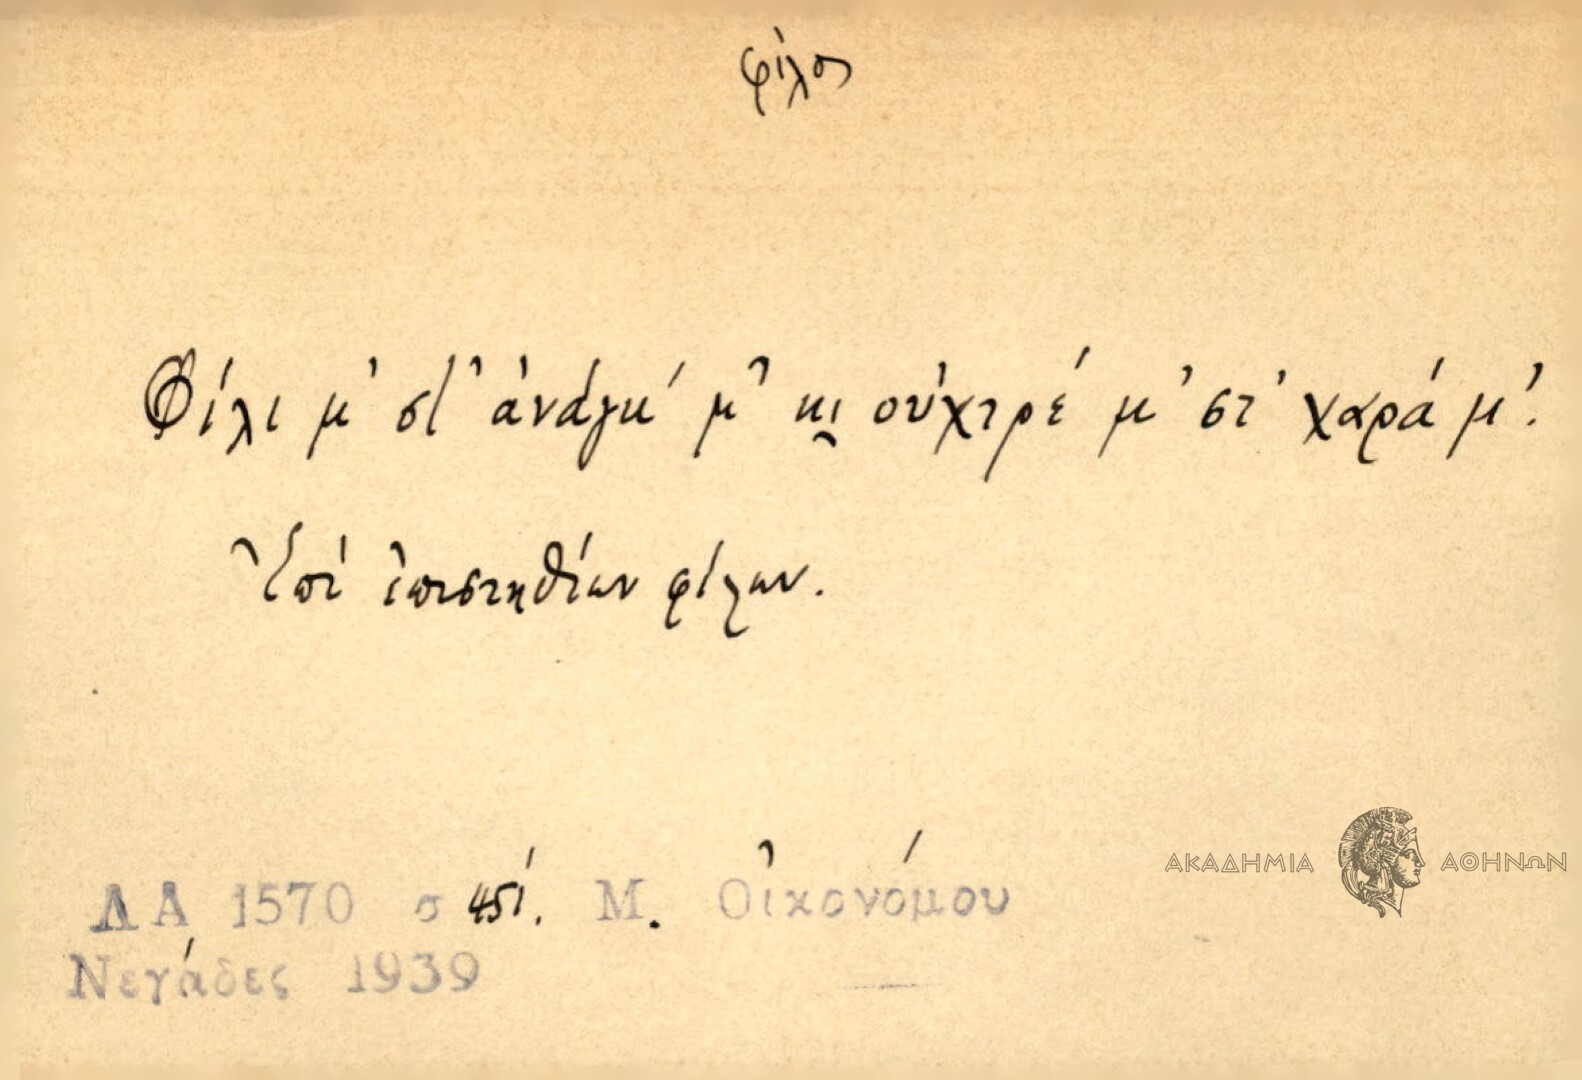 φίλος
Φίλι μ' στ' ἀνάγκ' μ' κι οὐχτρέ μ' στ' χαρά μ'.
Ἐπί ἐπιστηθίων φίλων.
ΛΑ 1570 σ 451. Μ. Οἰκονόμου
Νεγάδες 1939
ΑΚΑΔΗΜΙΑ ΑΘΗΝΩΝ